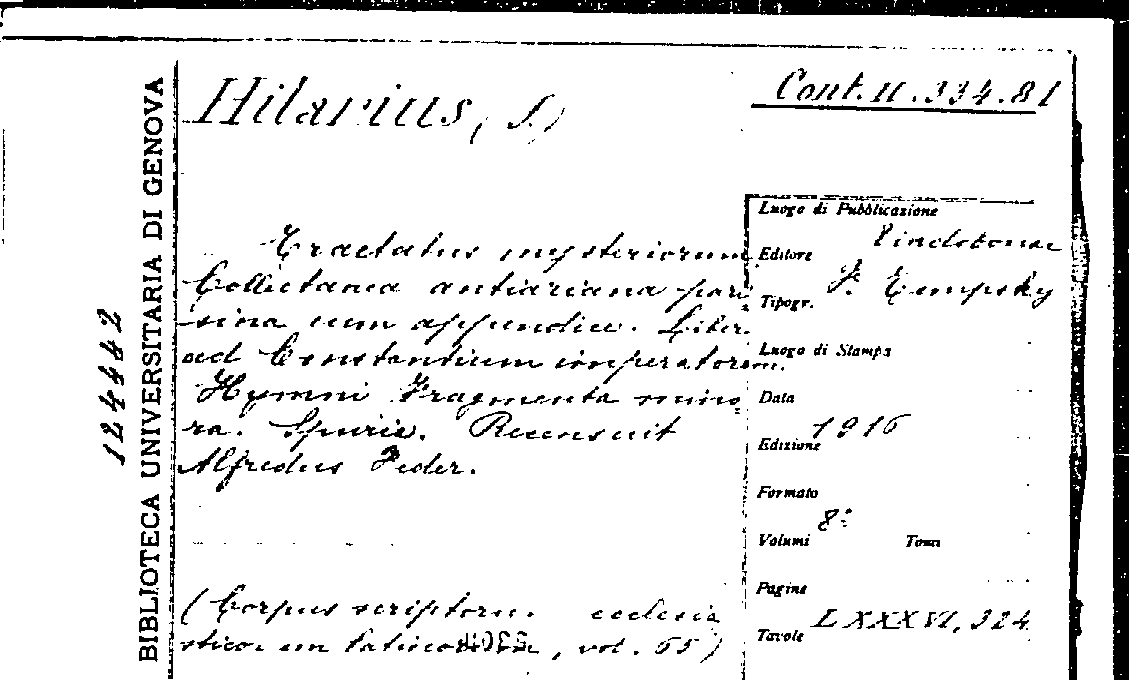 Hilarius, S.)
Cont. II. 334. 81
BIBLIOTECA UNIVERSITARIA DI GENOVA
124442
Tractatus mysteriorum
Collectanea antiariana pari-
sina cum appendice. Liber
ad Constantium imperatorem.
Hymni Fragmenta mino-
ra. Spuria. Recensuit
Alfredus Feder.
(Corpus scriptoru. ecclesia
sticorum latinorum, vol. 65)
Luogo di Pubblicazione
Vindobonae
Editore
F. Tempsky
Tipogr.
Luogo di Stampa
Data
1916
Edizione
Formato
8º
Volumi Tomi
Pagine
LXXXVI, 324
Tavole